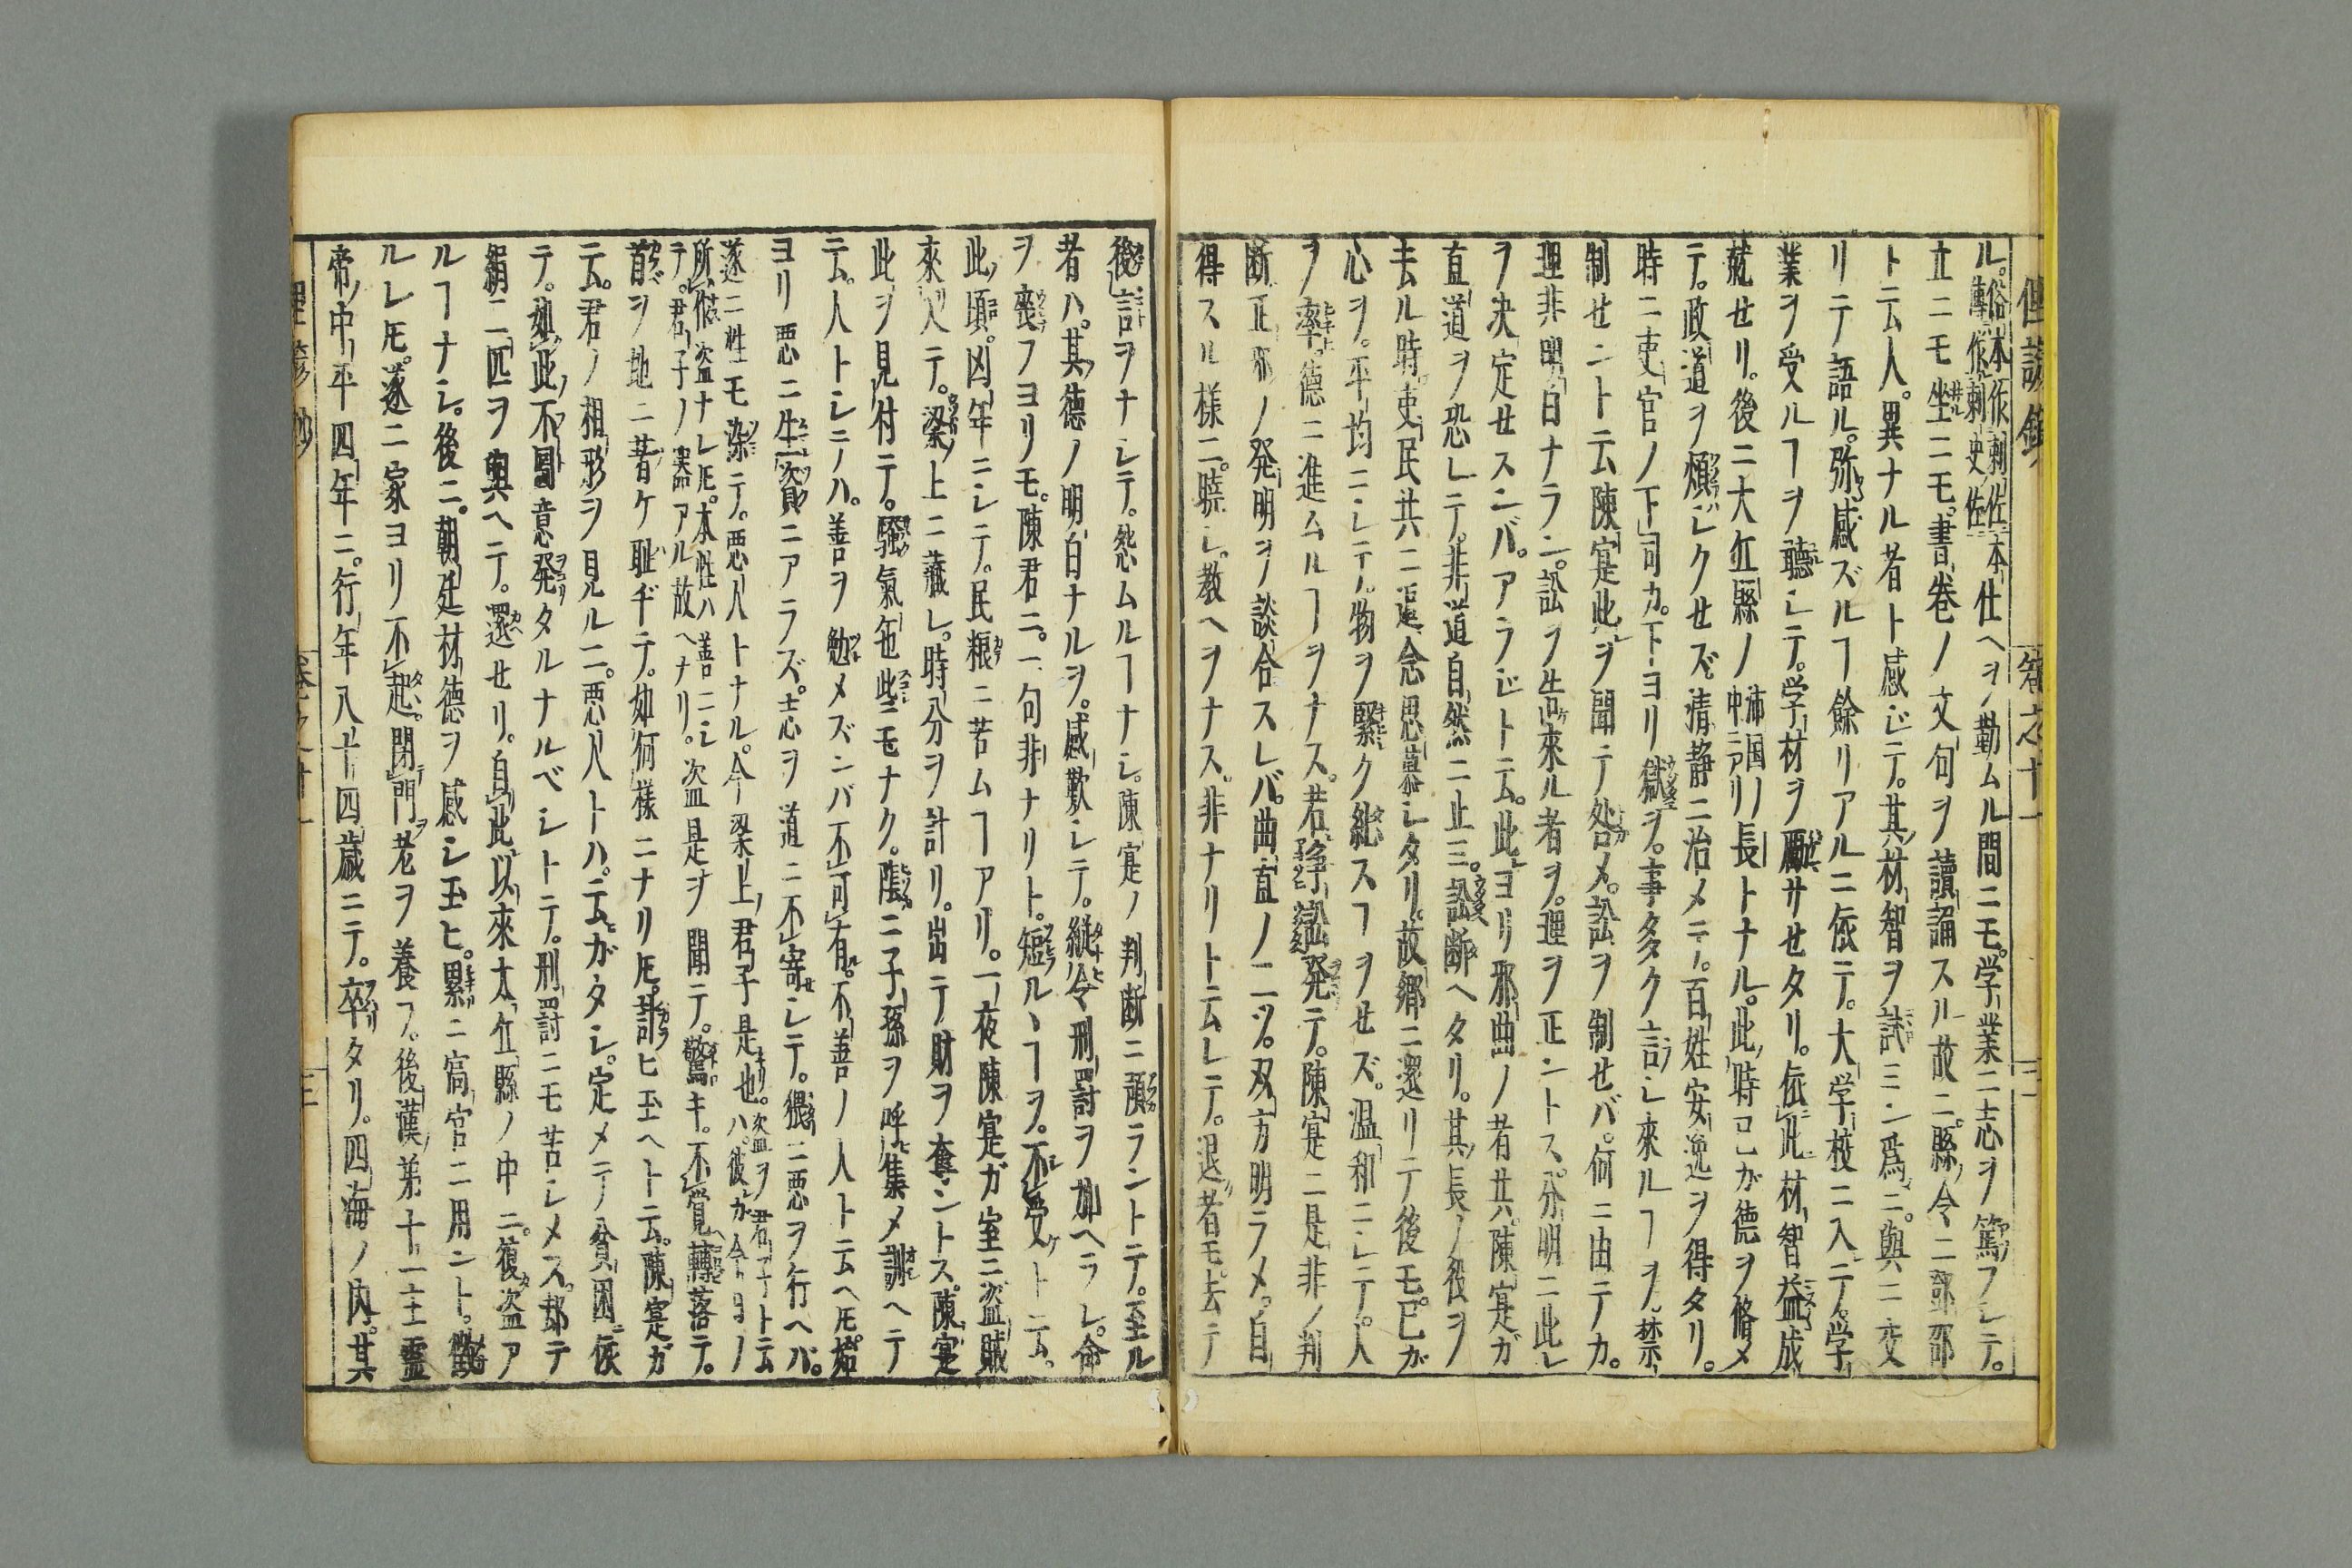 ル。俗本作刺佐一本仕ヘヲ勤ムル間ニモ。学業ニ志ヲ篤フシテ。
傳作刺史佐
立ニモ坐ニモ。書巻ノ文句ヲ讀誦スル故ニ。縣令ニ鄧邵
ト云人。異ナル者ト感ジテ。其材智ヲ試ミン爲ニ。與ニ交
リテ語ル。弥感ズルヿ餘リアルニ依テ。大学校ニ入テ。学
業ヲ受ルヿヲ聽シテ。学材ヲ勵サセタリ。依此材智益成
就せリ。後ニ大丘縣ノ沛国ノ中ニアリ長トナル。此時己ガ徳ヲ脩メ
テ。政道ヲ煩ジクせズ。清静ニ治メテ。百姓安逸ヲ得タリ。
時ニ吏官ノ下司カ。下ヨリ獄ヲ。事多ク言シ來ルヿヲ。禁
制せントニ云陳寔此ヲ聞テ咎メ。訟ヲ制せバ。何ニ由テカ。
理非明白ナラン。訟ヲ告來ル者ヲ。理ヲ正ントス。分明ニ此レ
ヲ决定せスンバ。アラジト云。此ヨリ邪曲ノ者共。陳寔ガ
直道ヲ恐レテ。非道自然ニ止ミ。訟断ヘタリ。其長ノ役ヲ
去ル時。吏民共ニ追念思慕シタリ。故郷ニ還リテ後モ。已ガ
心ヲ。平均ニシテ。物ヲ緊ク紕スヿヲせズ。温和ニシテ。人
ヲ率。徳ニ進ムルヿヲナス。若諍訟発テ。陳寔ニ是非ノ判
断正邪ノ発明ヲ談合スレバ。曲直ノ二ツ。双方明ラメ。自
得スル様ニ曉シ。教ヘヲナス。非ナリト云レテ。退者モ。去テ
後言ヲナシテ。怨ムルヿナシ。陳寔ノ判断ニ預ラントテ。至ル
者ハ。其徳ノ明白ナルヲ。感歎シテ。縱令刑罰ヲ加ヘラレ。命
ヲ喪フヨリモ。陳君ニ。一句非ナリト。短ルヽヿヲ。不受ト云。
此頃。凶年ニシテ。民粮ニ苦ムヿアリ。一夜陳寔ガ室ニ盗賊
來入テ。梁上ニ藏レ。時分ヲ計リ。出テ財ヲ奪ントス。陳寔
此ヲ見付テ。騒氣色些モナク。陰ニ子孫ヲ呼集メ謝ヘテ
云。人トシテハ。善ヲ勉メズンバ不可有。不善ノ人ト云ヘ𪜈始
ヨリ悪ニ生資ニアラズ。志ヲ道ニ不寄シテ。猥ニ悪ヲ行ヘバ。
遂ニ性モ染テ。悪人トナル。今梁上君子是也。盗ヲ君子ト云ハ。彼ガ今日ノ
所作盗ナレ𪜈。本性ハ善ニシテ。君子ノ器アル故ヘナリ。盗是ヲ聞テ。驚キ。不覚轉落テ。
首ヲ地ニ著ケ恥ヂテ。如何様ニナリ𪜈。計ヒ玉ヘト云。陳寔ガ
云。君ノ相形ヲ見ルニ。悪人トハ。云ガタシ。定メテ貧困ニ依
テ。如此不圖意発タルナルベシトテ。刑罰ニモ苦シメス。却テ
絹二匹ヲ與ヘテ。還せリ。自此以來太丘縣ノ中ニ。復盗ア
ルヿナシ。後ニ。朝廷材徳ヲ感シ玉ヒ。累ニ高官ニ用ント。徴
ルレ𪜈。遂ニ家ヨリ不起。閉門老ヲ養フ。後漢第十一主霊
帝ノ中平四年ニ。行年八十四歳ニテ。卒タリ。四海ノ内。其